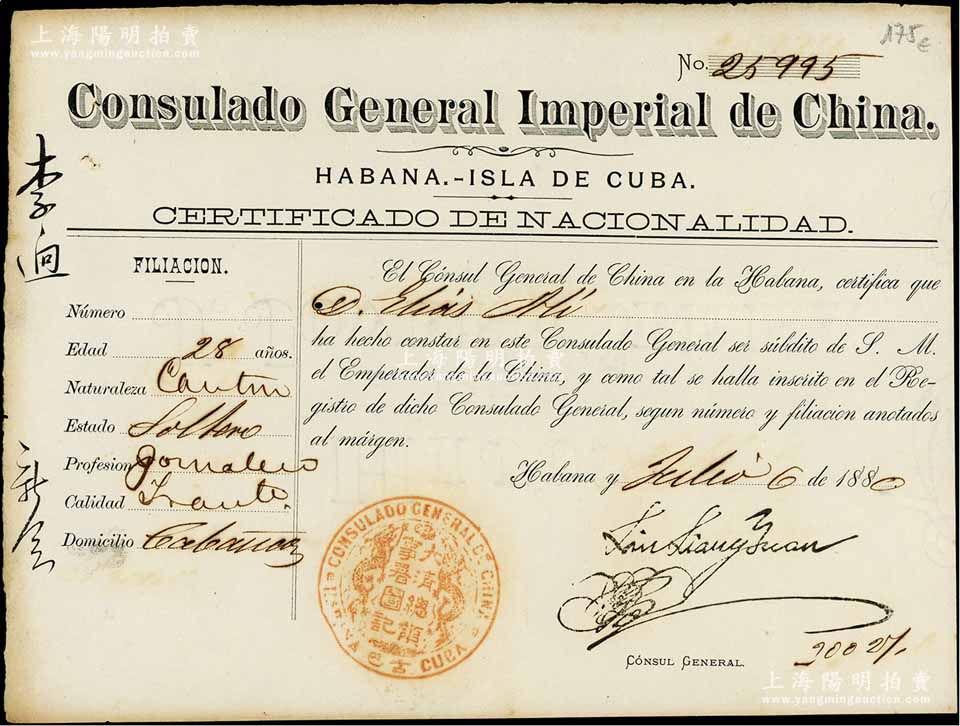 上海陽明拍賣
www.yangmingauction.com
175€
No. 25995
Consulado General Imperial de China.
HABANA.-ISLA DE CUBA.
CERTIFICADO DE NACIONALIDAD.
李迥
新会
FILIACION.
Número
Edad 28 años.
Naturaleza Canton
Estado Soltero
Profesion Jornalero
Calidad Transte.
Domicilio Cabañas
El Cónsul General de China en la Habana, certifica que
D. Elias Ali
ha hecho constar en este Consulado General ser súbdito de S. M.
el Emperador de la China, y como tal se halla inscrito en el Re-
gistro de dicho Consulado General, segun número y filiacion anotados
al márgen.
Habana y Julio 6 de 1880
Liu Liang Yuan
CÓNSUL GENERAL.
CONSULADO GENERAL DE CHINA
HABANA
CUBA
大清總領
事署圖記
古巴
上海陽明拍賣
www.yangmingauction.com
上海陽明拍賣
www.yangmingauction.com